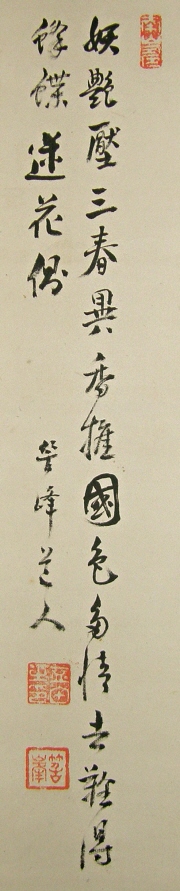 妖艶壓三春異香擅國色多情去難得
蜂蝶迷花側
峰道人